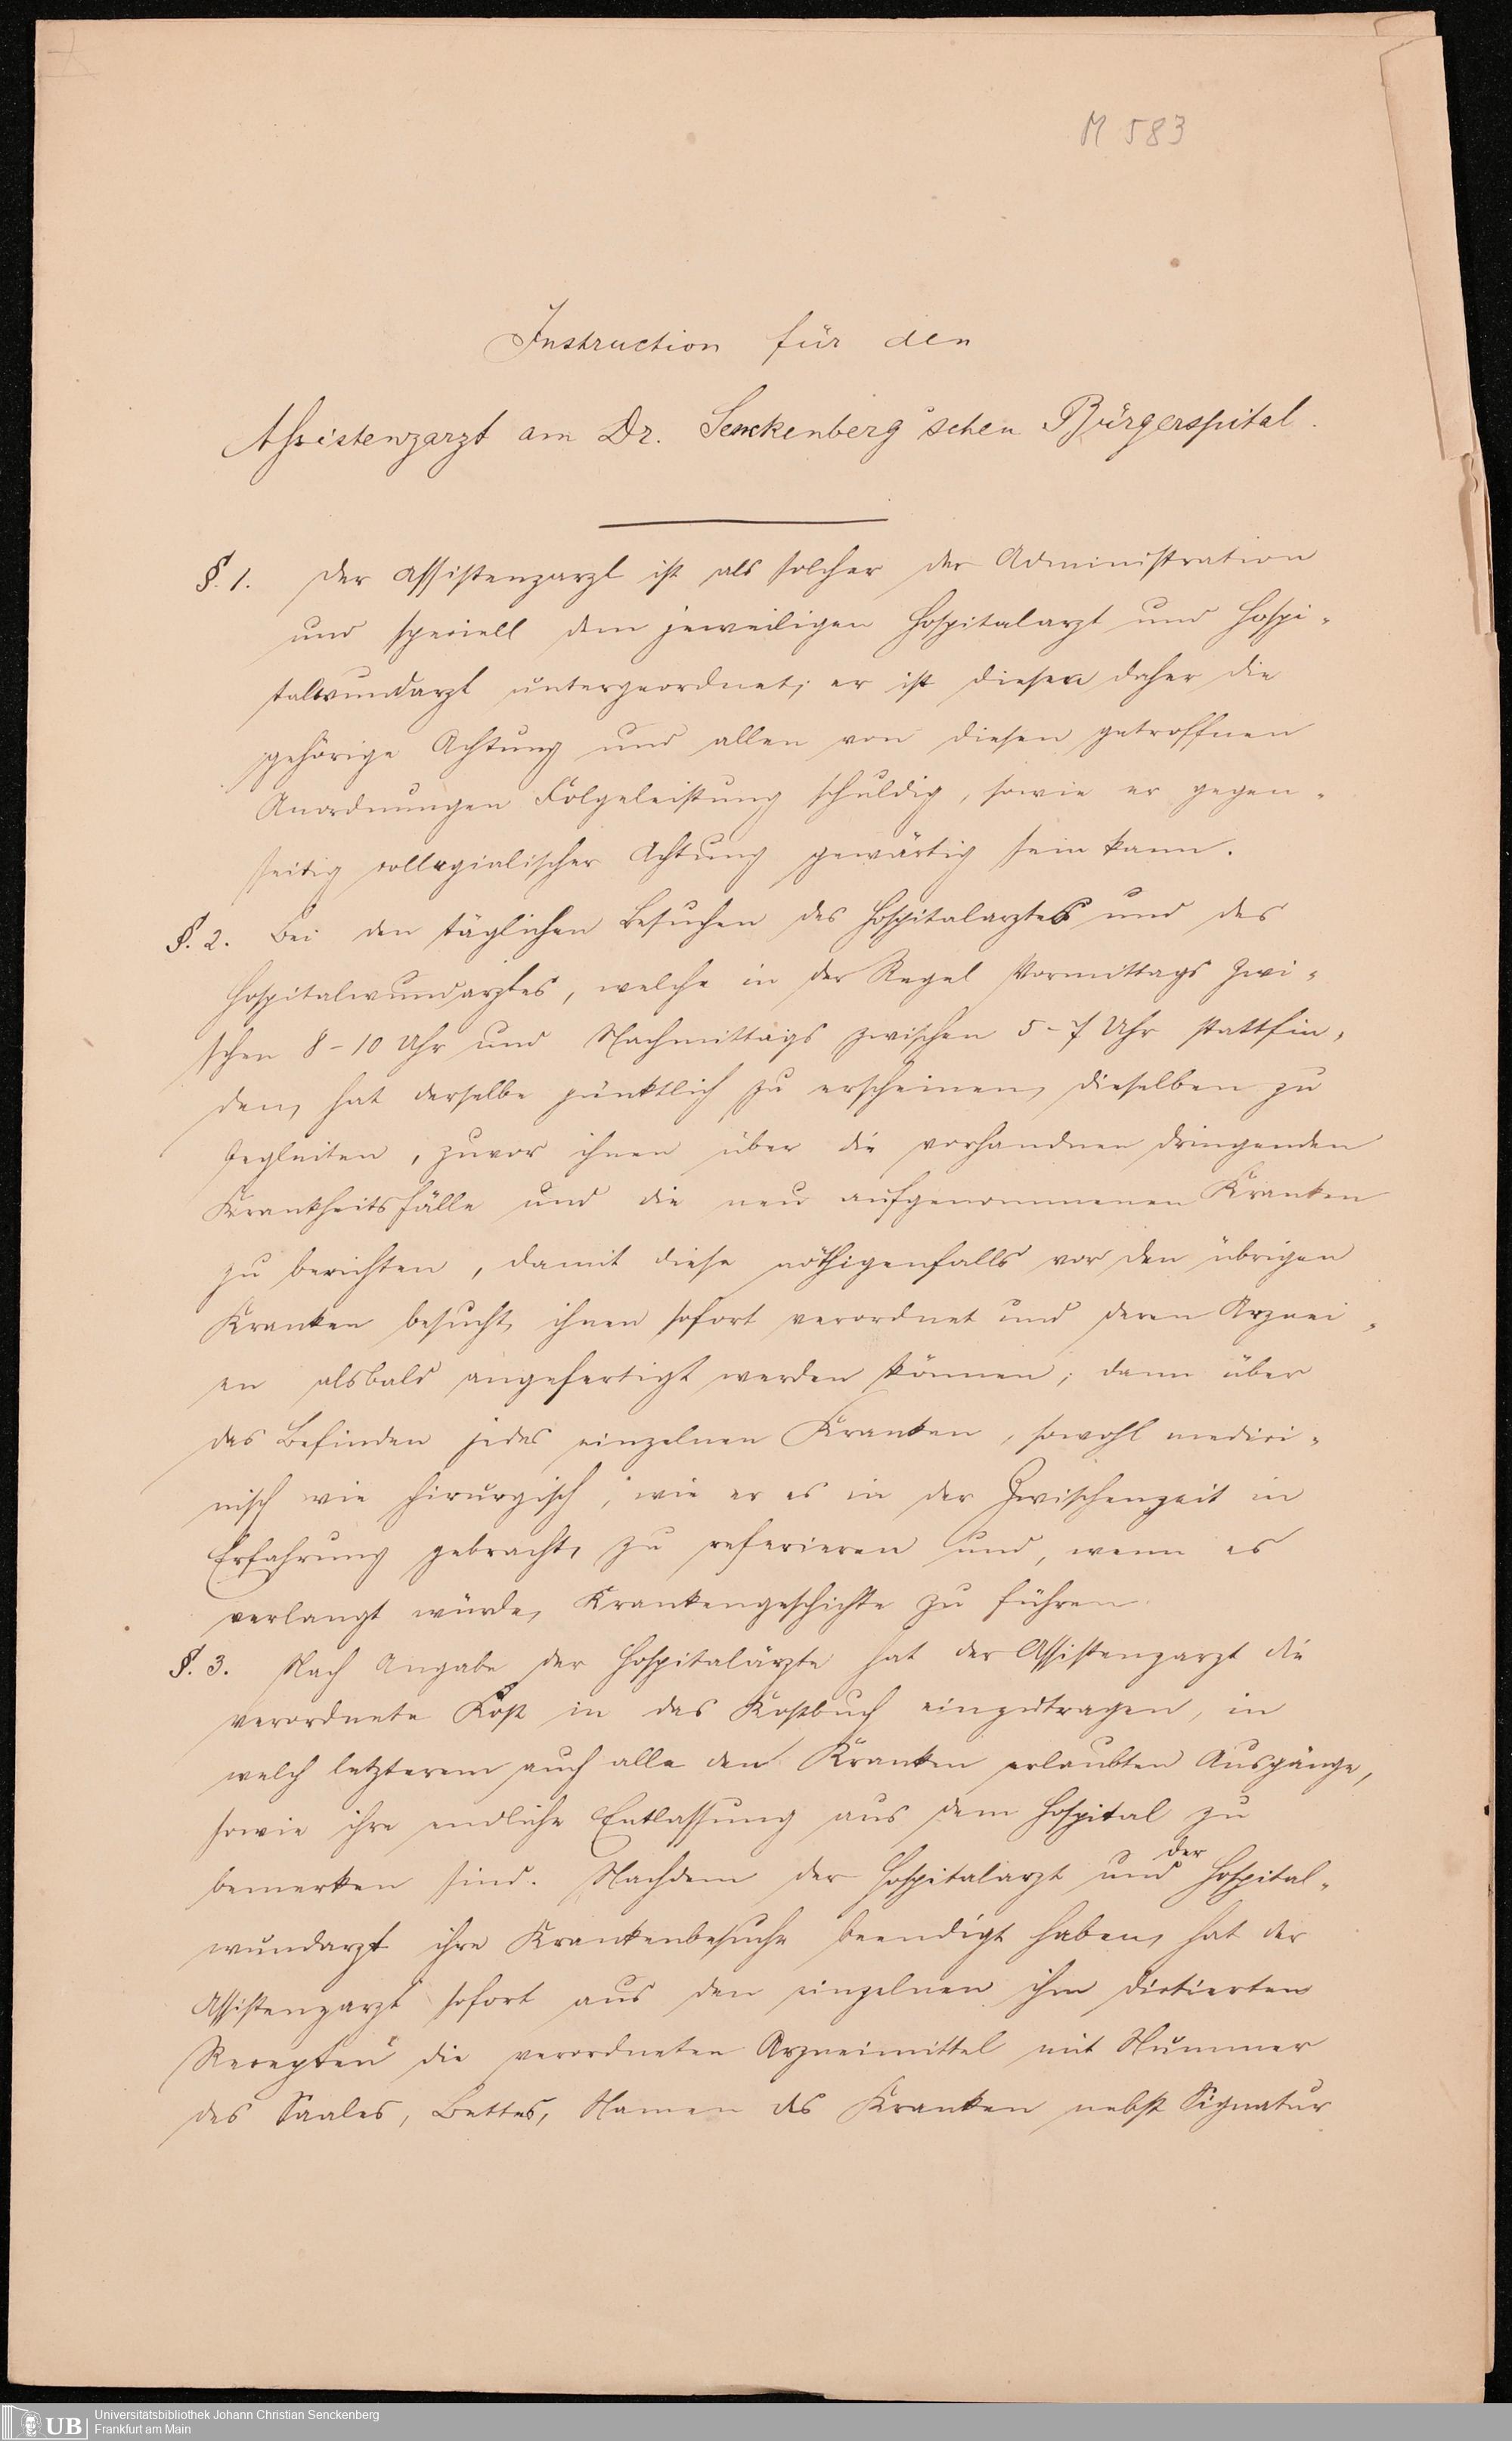 M 583
Instruction für den
Assistenzarzt am Dr. Senckenberg'schen Bürgerspital.
§. 1. Der Assistenzarzt ist als solcher der Administration
und speciell dem jeweiligen Hospitalarzt und Hospi-
talwundarzt untergeordnet; er ist diesen daher die
gehörige Achtung und allen von diesen getroffnen
Anordnungen Folgeleistung schuldig, sowie er gegen-
seitig collegialischer Achtung gewärtig sein kann.
§. 2. Bei den täglichen Besuchen des Hospitalarztes und des
Hospitalwundarztes, welche in der Regel Vormittags zwi-
schen 8-10 Uhr und Nachmittags zwischen 5-7 Uhr stattfin-
den, hat derselbe pünktlich zu erscheinen, dieselben zu
begleiten, zuvor ihnen über die vorhandnen dringenden
Krankheitsfälle und die neu aufgenommenen Kranken
zu berichten, damit diese nöthigenfalls vor den übrigen
Kranken besucht, ihnen sofort verordnet und deren Arznei-
en alsbald angefertigt werden können; dann über
das Befinden jedes einzelnen Kranken, sowohl medici-
nisch wie chirurgisch, wie er es in der Zwischenzeit in
Erfahrung gebracht, zu referieren und, wenn es
verlangt würde, Krankengeschichte zu führen.
§. 3. Nach Angabe der Hospitalärzte hat der Assistenzarzt die
verordnete Kost in das Kostbuch einzutragen, in
welch letzterem auch alle den Kranken erlaubten Ausgänge,
sowie ihre endliche Entlassung aus dem Hospital zu
bemerken sind. Nachdem der Hospitalarzt und der Hospital-
wundarzt ihre Krankenbesuche beendigt haben, hat der
Assistenzarzt sofort aus den einzelnen ihm dictierten
Recepten die verordneten Arzneimittel mit Nummer
des Saales, Bettes, Namen des Kranken nebst Signatur
UB
Universitätsbibliothek Johann Christian Senckenberg
Frankfurt am Main